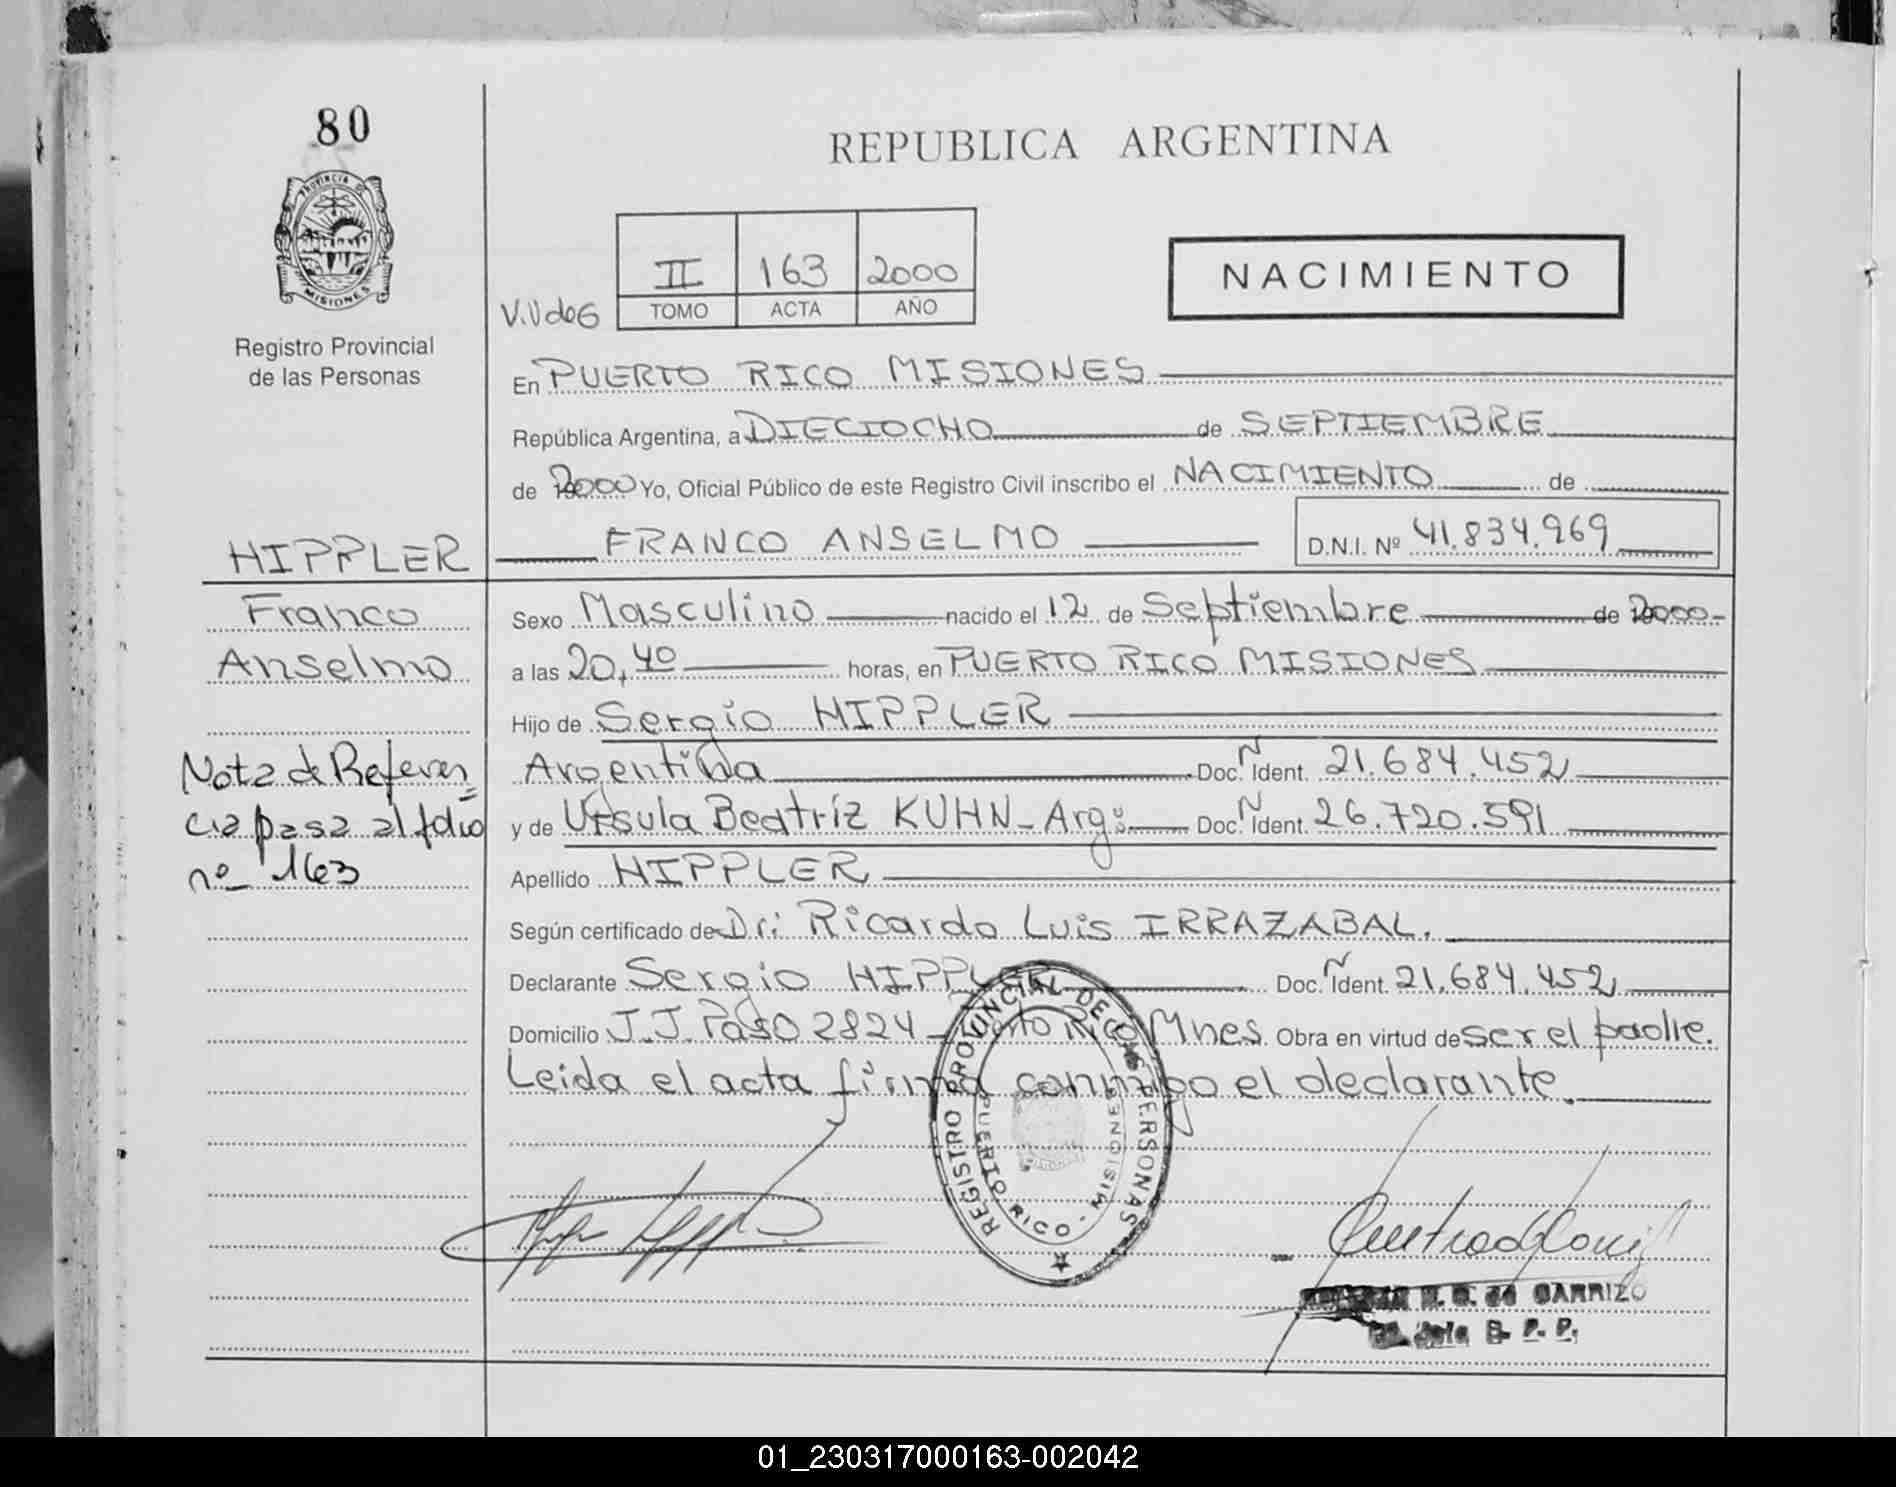 80
PROVINCIA DE
MISIONES
Registro Provincial
de las Personas
REPUBLICA ARGENTINA
II 163 2000
TOMO ACTA AÑO
NACIMIENTO
En PUERTO RICO MISIONES
República Argentina, a DIECIOCHO de SEPTIEMBRE
de 2000 Yo, Oficial Público de este Registro Civil inscribo el NACIMIENTO de
HIPPLER
FRANCO ANSELMO D.N.I. Nº 41.834.969
Franco
Anselmo
Sexo Masculino nacido el 12 de Septiembre de 2000-
a las 20,40 horas, en PUERTO RICO MISIONES
Hijo de Sergio HIPPLER
Argentina Doc. Ñ Ident. 21.684.452
y de Ursula Beatríz KUHN - Arg: Doc. Ñ Ident. 26.720.591
Nota de Referen
cia pasa al folio
nº 163
Apellido HIPPLER
Según certificado de Dr: Ricardo Luis IRRAZABAL.
Declarante Sergio HIPPLER Doc. Ñ Ident. 21.684.452
Domicilio J.J. Paso 2824 - Pto Rico Mnes. Obra en virtud de ser el padre.
Leida el acta firma conmigo el declarante.
REGISTRO PROVINCIAL DE LAS PERSONAS
PUERTO RICO - MISIONES
de CARRIZO
R. P. P.
01_230317000163-002042